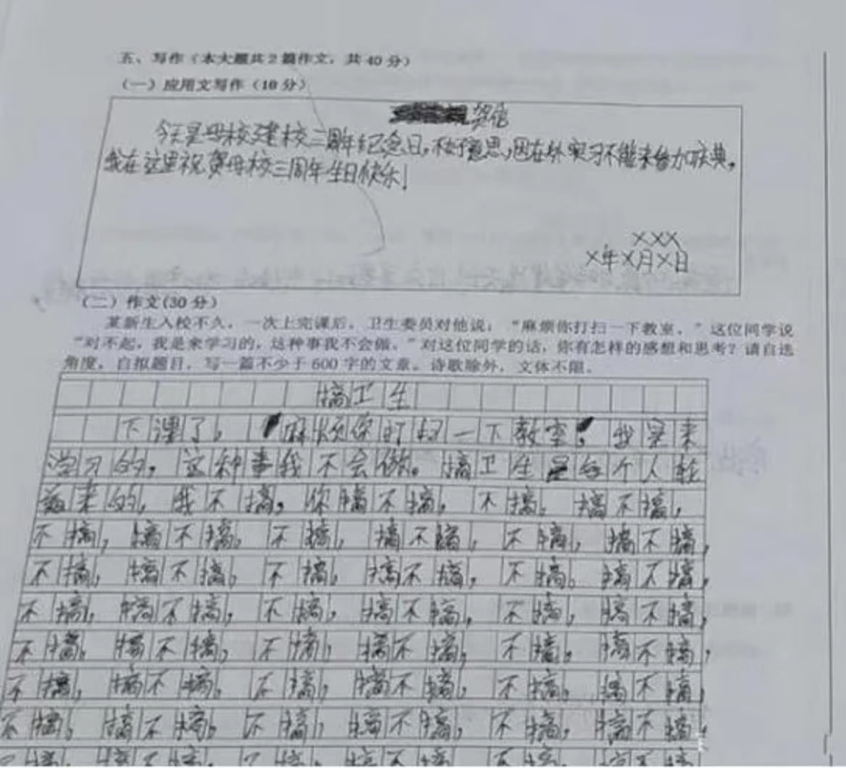 五、写作（本大题共2篇作文，共40分）
（一）应用文写作（10分）
贺信
今天是母校建校三周年纪念日，不好意思，因在外实习不能来参加庆典，
我在这里祝贺母校三周年生日快乐！
XXX
X年X月X日
（二）作文（30分）
某新生入校不久，一次上完课后，卫生委员对他说：“麻烦你打扫一下教室。”这位同学说
“对不起，我是来学习的，这种事我不会做。”对这位同学的话，你有怎样的感想和思考？请自选
角度，自拟题目，写一篇不少于600字的文章。诗歌除外，文体不限。
搞卫生
下课了，“麻烦你打扫一下教室”。我是来
学习的，这种事我不会做。搞卫生是每个人轮
着来的，我不搞，你搞不搞，不搞，搞不搞，
不搞，搞不搞，不搞，搞不搞，不搞，搞不搞，
不搞，搞不搞，不搞，搞不搞，不搞，搞不搞，
不搞，搞不搞，不搞，搞不搞，不搞，搞不搞，
不搞，搞不搞，不搞，搞不搞，不搞，搞不搞，
不搞，搞不搞，不搞，搞不搞，不搞，搞不搞，
不搞，搞不搞，不搞，搞不搞，不搞，搞不搞，
不搞，搞不搞，不搞，搞不搞，不搞，搞不搞